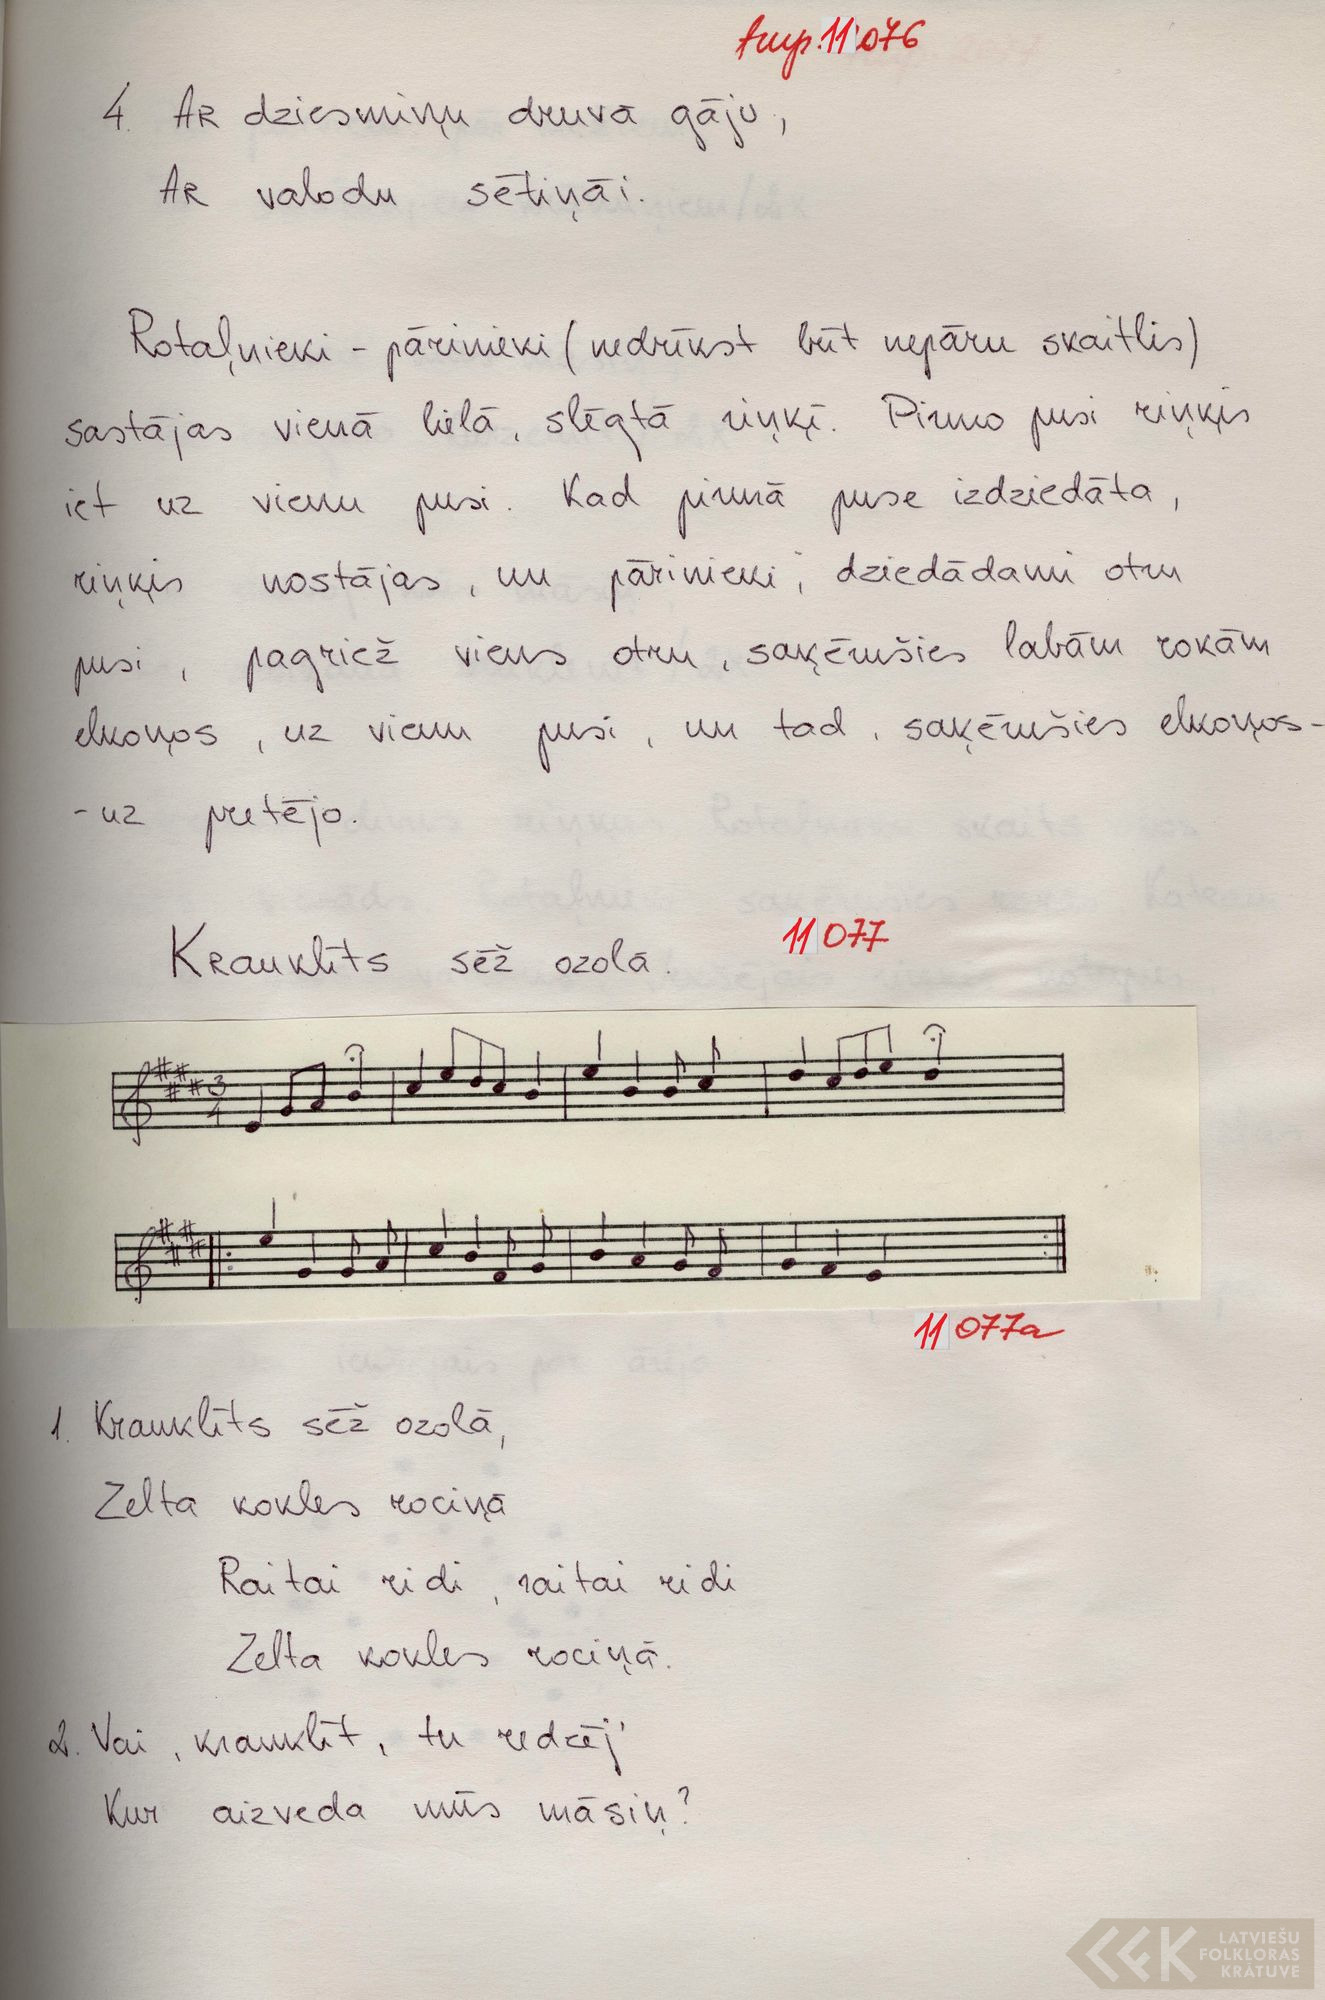 turp. 11 076
4. Ar dziesmiņu druvā gāju,
Ar valodu sētiņāi.
Rotaļnieki - pārinieki (nedrīkst būt nepāru skaitlis)
sastājas vienā lielā, slēgtā riņķī. Pirmo pusi riņķis
iet uz vienu pusi. Kad pirmā puse izdziedāta,
riņķis nostājas, un pārinieki, dziedādami otru
pusi, pagriež viens otru, saķērušies labām rokām
elkoņos, uz vienu pusi, un tad, saķērušies elkoņos-
-uz pretējo.
Krauklīts sēž ozolā. 11 077
3
4
11 077a
1. Krauklīts sēž ozolā,
Zelta kokles rociņā
Raitai ridi, raitai ridi
Zelta kokles rociņā.
2. Vai, krauklīt, tu redzēj'
Kur aizveda mūs māsiņ?
LATVIEŠU
FOLKLORAS
KRĀTUVE